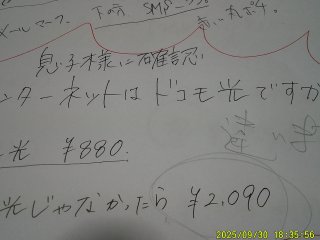 メールマーク。 下の方、SMSマーク。
赤い丸ポチ。
息子様に確認
ンターネットはドコモ光ですか
光 ¥880.
違い
光じゃなかったら ¥2,090
2025/09/30 18:35:56